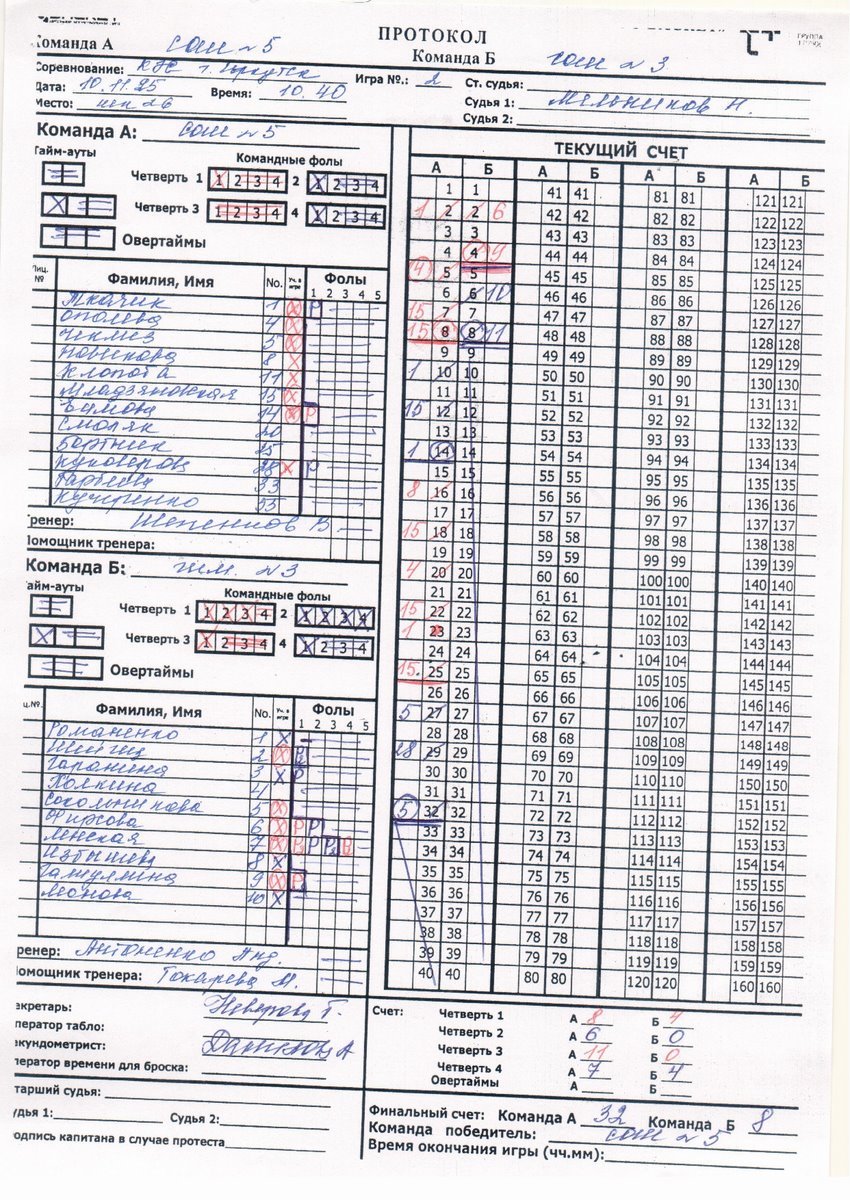 ПРОТОКОЛ
Команда А сош №5 Команда Б сош №3
Соревнование: г. Иркутск Игра №.: 2 Ст. судья:
Дата: 10.11.25 Время: 10.40 Судья 1: Мельников Н.
Место: Судья 2:
Команда А: сош №5
Тайм-ауты Командные фолы
Четверть 1 1 2 3 4 2 1 2 3 4
Четверть 3 1 2 3 4 4 1 2 3 4
Овертаймы
Лиц. № Фамилия, Имя No. Уч. в игре Фолы 1 2 3 4 5
Ткачик 1 X P
4 X
5 X
Новикова 8 X
Клопота 11 X
Младзяновская 15 X
14 X P
Смоляк 20
Бортник 25
28 X P
33
Кучеренко 55
Тренер: Шепенков В
Помощник тренера:
Команда Б: гим. №3
Тайм-ауты Командные фолы
Четверть 1 1 2 3 4 2 1 2 3 4
Четверть 3 1 2 3 4 4 1 2 3 4
Овертаймы
Лиц.№. Фамилия, Имя No. Уч. в игре Фолы 1 2 3 4 5
Романенко 1 X
2 X
Гаранина 3 X P
Холкина 4
Сокольникова 5 X
Фирсова 6 X P P
Ленская 7 X
8 X
9 X
10 X
Тренер: Антоненко Анд.
Помощник тренера: Токарева М.
Секретарь: Неверова Г.
Оператор табло:
Секундометрист: Данилова А
Оператор времени для броска:
Старший судья:
Судья 1: Судья 2:
Подпись капитана в случае протеста
ТЕКУЩИЙ СЧЕТ
А Б А Б А Б А Б
1 1 41 41 81 81 121 121
1 2 2 6 42 42 82 82 122 122
3 3 43 43 83 83 123 123
4 4 9 44 44 84 84 124 124
4 5 5 45 45 85 85 125 125
6 6 10 46 46 86 86 126 126
15 7 7 47 47 87 87 127 127
15 8 8 11 48 48 88 88 128 128
9 9 49 49 89 89 129 129
1 10 10 50 50 90 90 130 130
11 11 51 51 91 91 131 131
15 12 12 52 52 92 92 132 132
13 13 53 53 93 93 133 133
1 14 14 54 54 94 94 134 134
15 15 55 55 95 95 135 135
8 16 16 56 56 96 96 136 136
17 17 57 57 97 97 137 137
15 18 18 58 58 98 98 138 138
19 19 59 59 99 99 139 139
4 20 20 60 60 100 100 140 140
21 21 61 61 101 101 141 141
15 22 22 62 62 102 102 142 142
1 23 23 63 63 103 103 143 143
24 24 64 64 104 104 144 144
15 25 25 65 65 105 105 145 145
26 26 66 66 106 106 146 146
5 27 27 67 67 107 107 147 147
28 28 68 68 108 108 148 148
28 29 29 69 69 109 109 149 149
30 30 70 70 110 110 150 150
31 31 71 71 111 111 151 151
5 32 32 72 72 112 112 152 152
33 33 73 73 113 113 153 153
34 34 74 74 114 114 154 154
35 35 75 75 115 115 155 155
36 36 76 76 116 116 156 156
37 37 77 77 117 117 157 157
38 38 78 78 118 118 158 158
39 39 79 79 119 119 159 159
40 40 80 80 120 120 160 160
Счет: Четверть 1 А 8 Б 4
Четверть 2 А 6 Б 0
Четверть 3 А 11 Б 0
Четверть 4 А 7 Б 4
Овертаймы А Б
Финальный счет: Команда А 32 Команда Б 8
Команда победитель: сош №5
Время окончания игры (чч.мм):